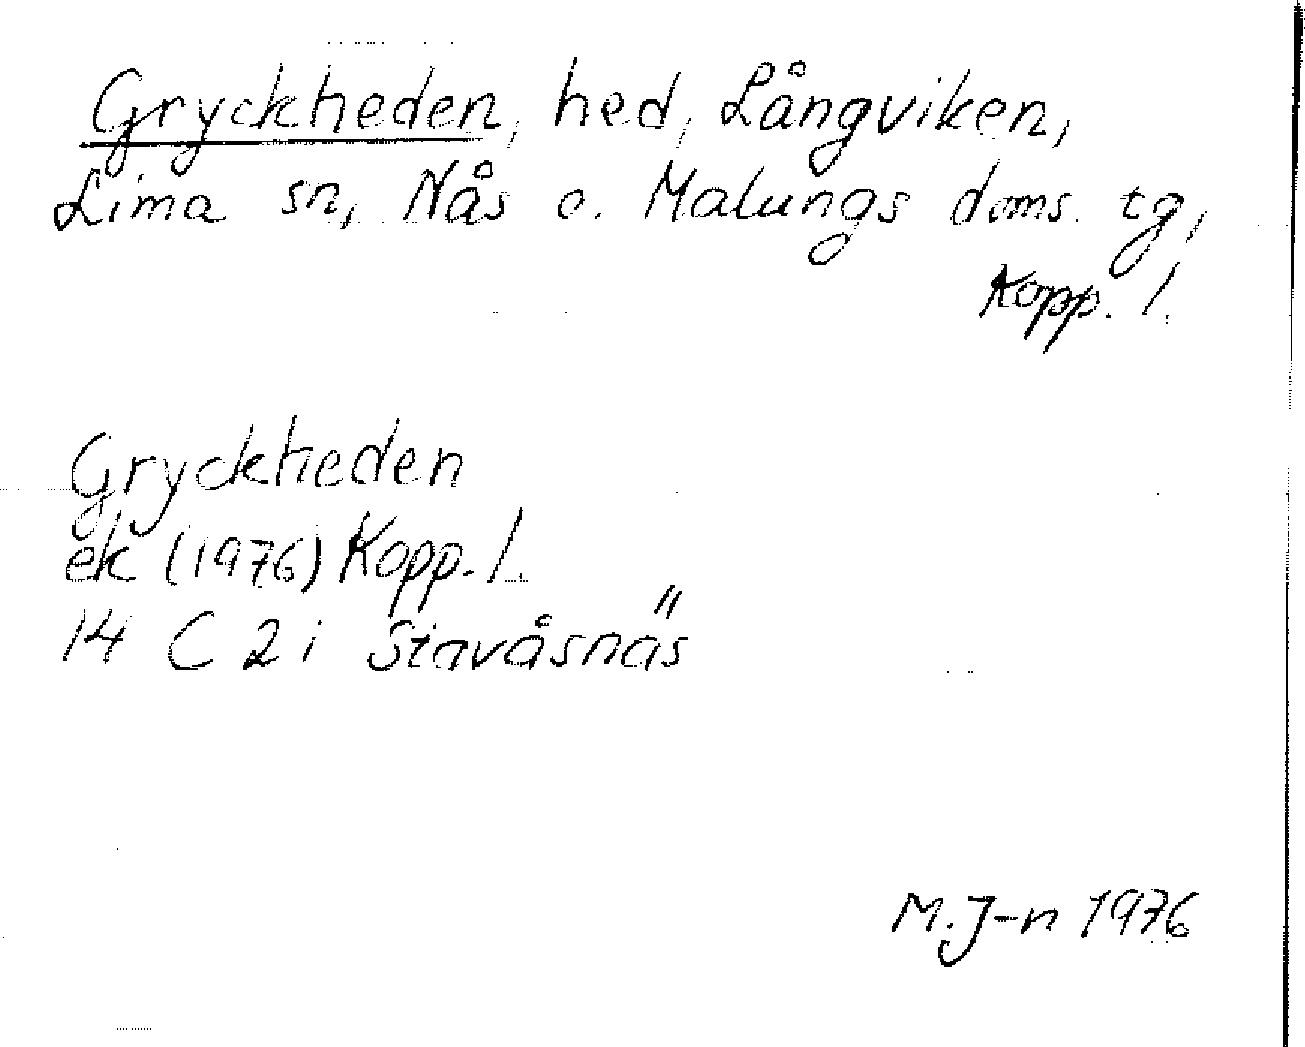 Gryckheden, hed, Långviken,
Lima sn, Nås o. Malungs doms. tg,
Kopp. l.
Gryckheden
ek (1976) Kopp. l.
14 C 2 i Stavåsnäs
M. J-n 1976